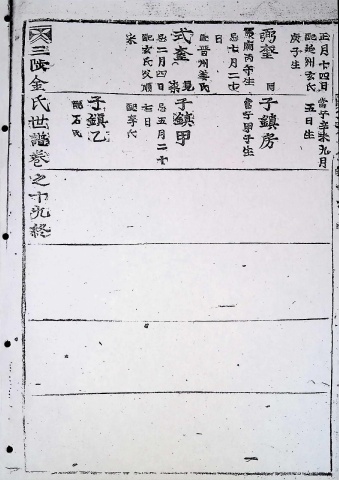 正月十四日
配延州玄氏
庚子生
弼奎
憲廟丙午生
忌七月二十
日
配晋州姜氏
式奎
忌二月四日
配玄氏父順
宋
當宁辛未九月
五日生
子鎮房
當宁甲子生
子鎮甲
忌五月二十
七日
配李氏
子鎮乙
配石氏
三陟金氏世譜卷之十九終